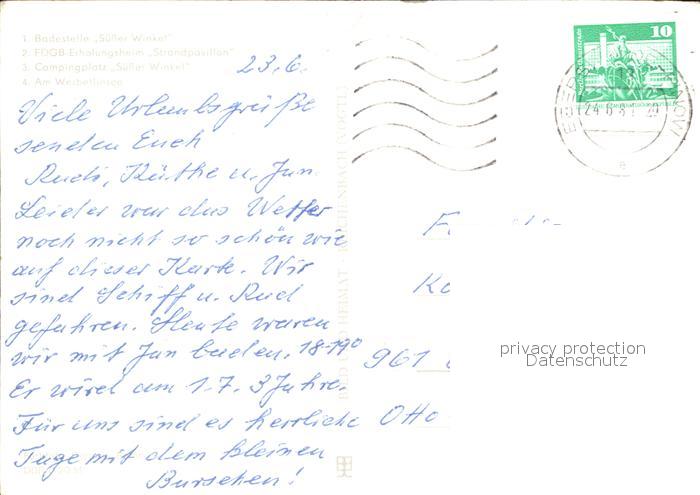 1. Badestelle „Süßer Winkel"
2. FDGB-Erholungsheim „Strandpavillon"
3. Campingplatz „Süßer Winkel"
4. Am Werbellinsee
23.6.
Viele Urlaubsgrüße
senden Euch
Rudi, Käthe u. Jan.
Leider war das Wetter
noch nicht so schön wie
auf dieser Karte. Wir
sind Schiff u. Rad
gefahren. Heute waren
wir mit Jan baden. 18-19°
Er wird am 1.7. 3 Jahre.
Für uns sind es herrliche
Tage mit dem kleinen
Burschen!
10
BILD UND HEIMAT REICHENBACH (VOGTL)
F
Ko
961
Otto
privacy protection
Datenschutz